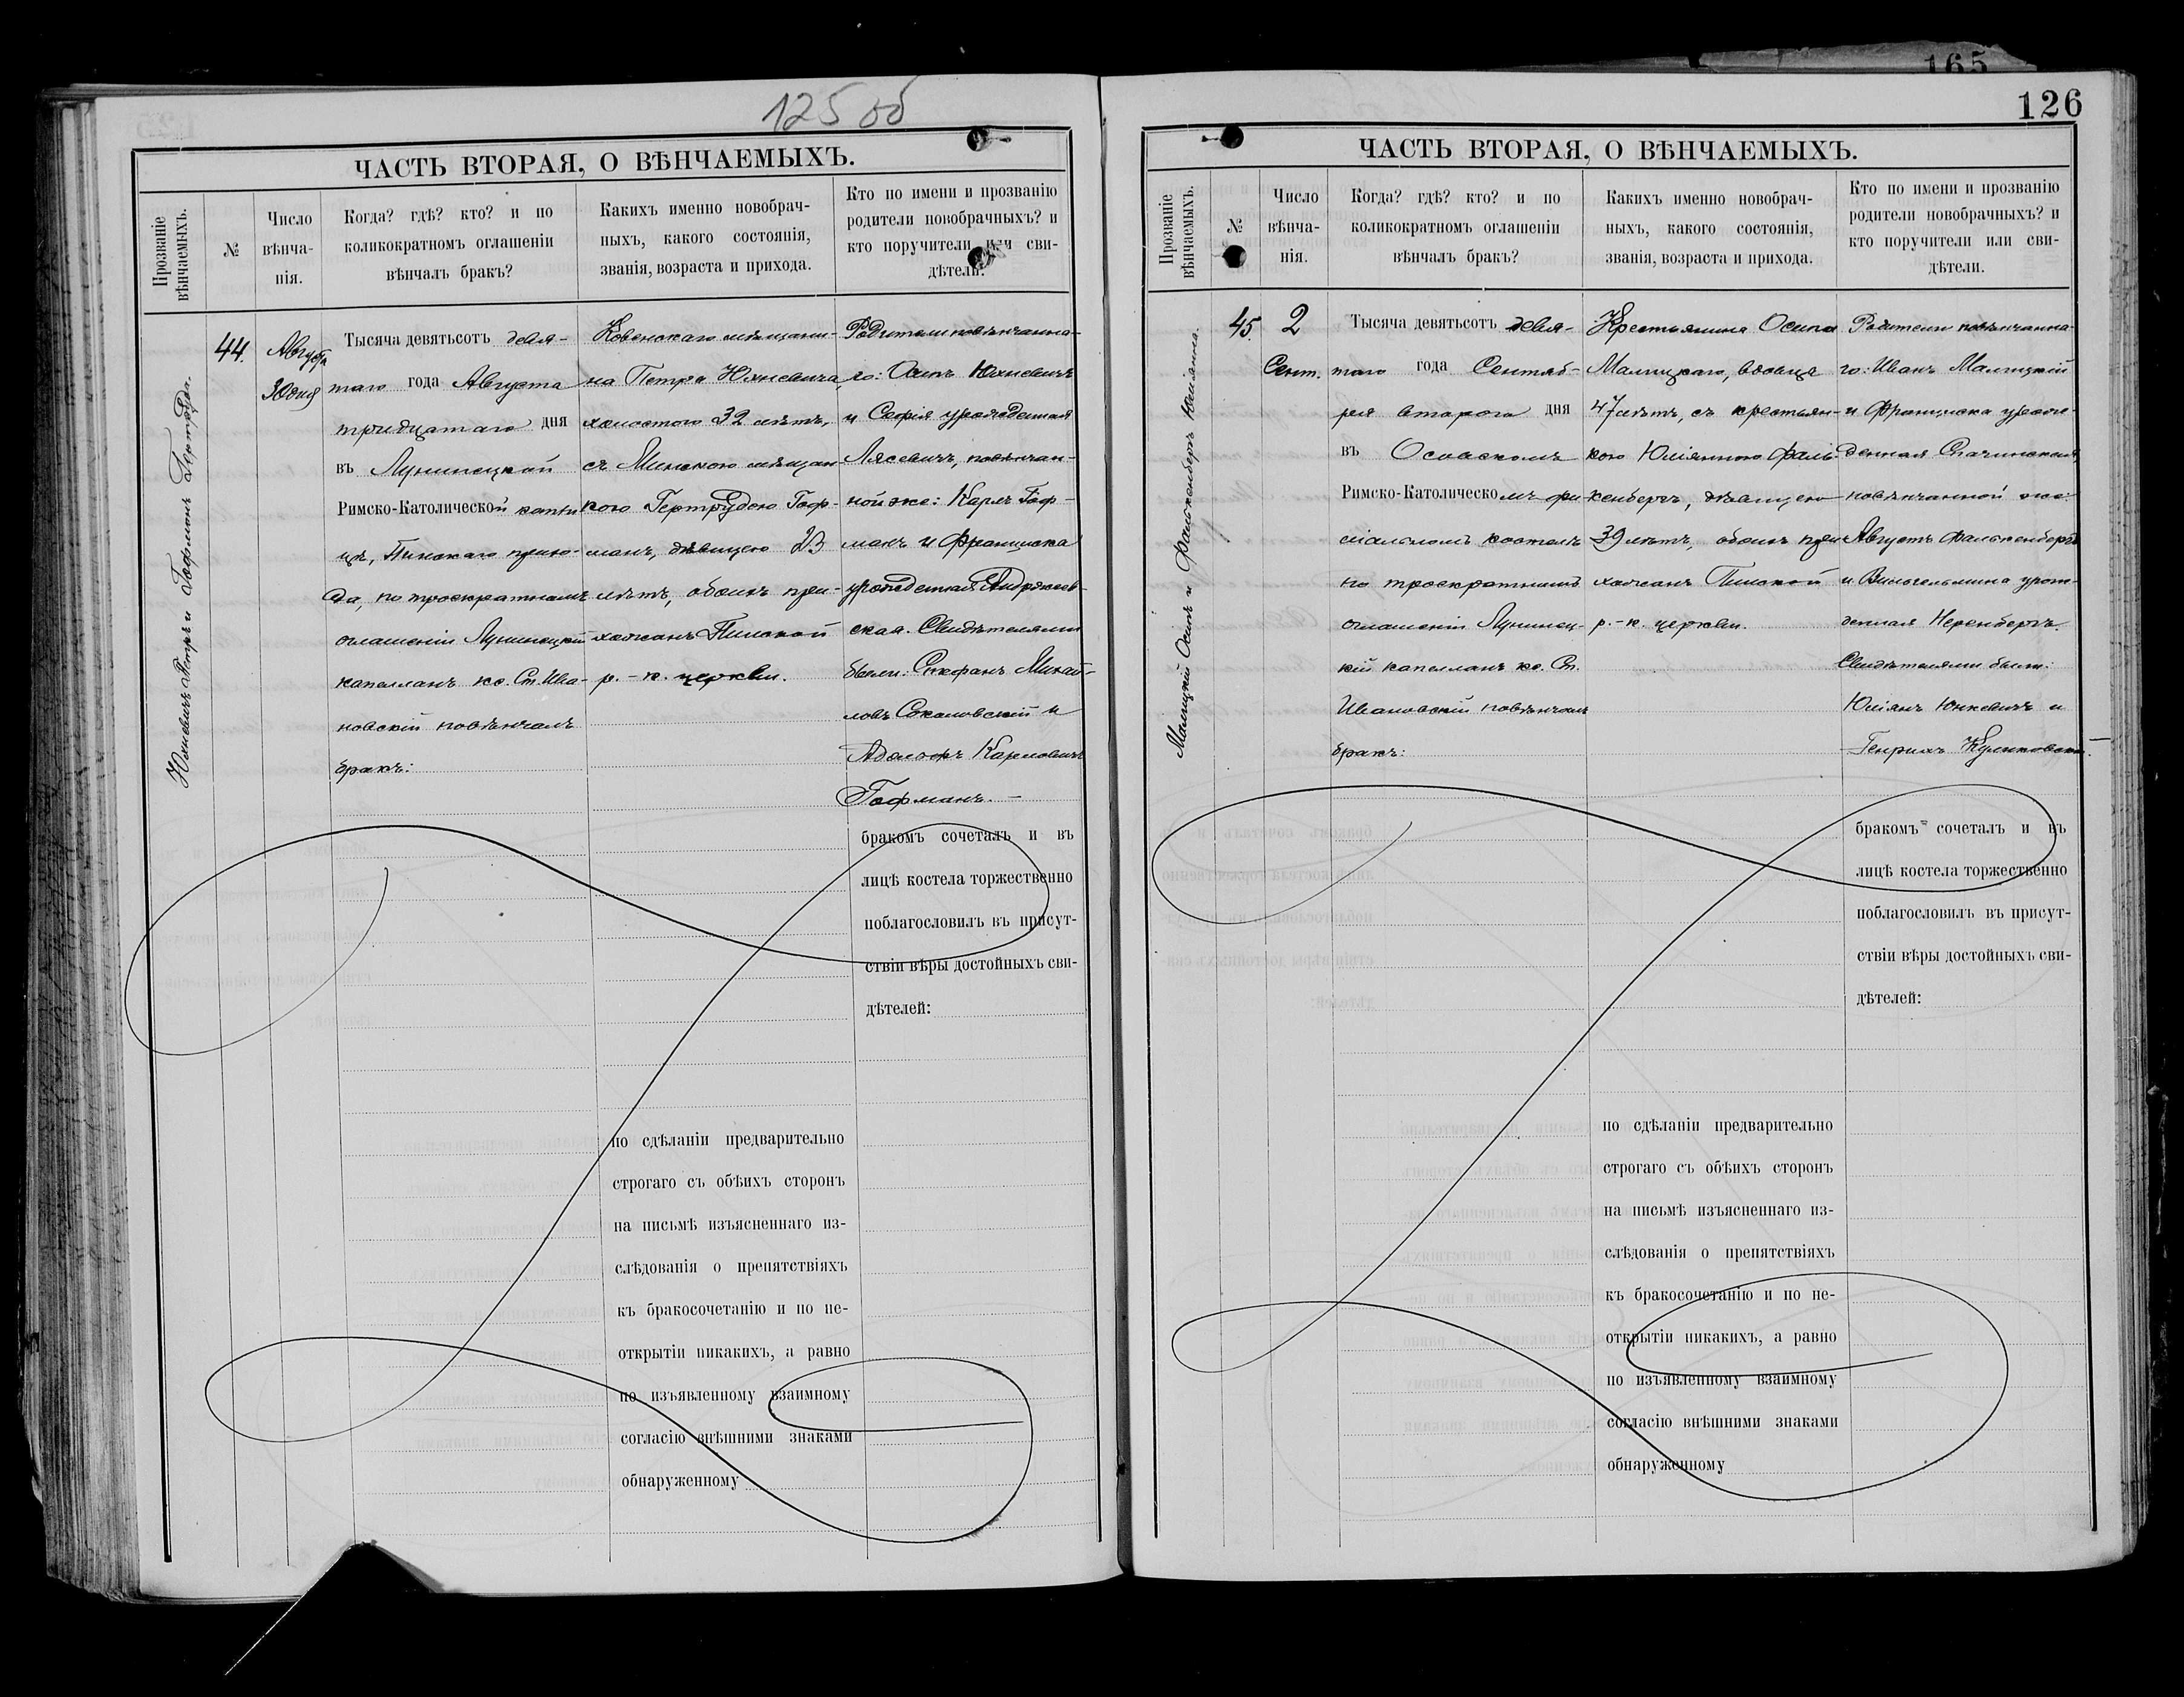 165
125 об
ЧАСТЬ ВТОРАЯ, О ВѢНЧАЕМЫХЪ.
Прозваніе вѣнчаемыхъ.
№
Число вѣнча-
нія.
Когда? гдѣ? кто? и по
коликократномъ оглашеніи
вѣнчалъ бракъ?
Какихъ именно новобрач-
ныхъ, какого состоянія,
званія, возраста и прихода.
Кто по имени и прозванію
родители новобрачныхъ? и
кто поручители или сви-
дѣтели.
Юхневичъ Петръ и Гофманъ Гертруда.
44.
Августа
30 дня
Тысяча девятьсотъ девя-
таго года Августа
тридцатаго дня
въ Лунинецкой
Римско-Католической капли
цѣ, Пинскаго прихо-
да, по троекратномъ
оглашеніи Лунинецкій
капелланъ кс. Ст. Ива-
новскій повѣнчалъ
бракъ:
Ковенскаго мѣщани-
на Петра Юхневича,
холостого 32 лѣтъ,
съ Минскою мѣщан
кою Гертрудою Гоф-
манъ, дѣвицею 23
лѣтъ, обоихъ при-
хожанъ Пинской
р.-к. церкви.
Родители повѣнчанна-
го: Осипъ Юхневичъ
и Софія урожденная
Лясевичъ, повѣнчан-
ной же: Карлъ Гоф-
манъ и Франциска
урожденная Андржеев-
ская. Свидѣтелями
были: Стефанъ Михай-
ловъ Соколовскій и
Адольфъ Карловичъ
Гофманъ.—
бракомъ сочеталъ и въ
лицѣ костела торжественно
поблагословилъ въ присут-
ствіи вѣры достойныхъ сви-
дѣтелей:
по сдѣланіи предварительно
строгаго съ обѣихъ сторонъ
на письмѣ изъясненнаго из-
слѣдованія о препятствіяхъ
къ бракосочетанію и по не-
открытіи никакихъ, а равно
по изъявленному взаимному
согласію внѣшними знаками
обнаруженному
126
ЧАСТЬ ВТОРАЯ, О ВѢНЧАЕМЫХЪ.
Прозваніе вѣнчаемыхъ.
№
Число
вѣнча-
нія.
Когда? гдѣ? кто? и по
коликократномъ оглашеніи
вѣнчалъ бракъ?
Какихъ именно новобрач-
ныхъ, какого состоянія,
званія, возраста и прихода.
Кто по имени и прозванію
родители новобрачныхъ? и
кто поручители или сви-
дѣтели.
Малицкій Осипъ и Фалькенбергъ Юліанна.
45.
2
Сент.
Тысяча девятьсотъ девя-
таго года Сентяб-
ря второго дня
въ Осовскомъ
Римско-Католическомъ фи
ліальномъ костелѣ
по троекратномъ
оглашеніи Лунинец-
кій капелланъ кс. Ст.
Ивановскій повѣнчалъ
бракъ:
Крестьянина Осипа
Малицкаго, вдовца
47 лѣтъ, съ крестьян-
кою Юліанною Фаль-
кенбергъ, дѣвицею
39 лѣтъ, обоихъ при
хожанъ Пинской
р.-к. церкви.
Родители повѣнчанна-
го: Иванъ Малицкій
и Франциска урож-
денная Стачинская,
повѣнчанной же:
Августъ Фалькенбергъ
и Вильгельмина урож-
денная Неренбергъ.
Свидѣтелями были:
Юліанъ Юхневичъ и
Генрихъ Куликовскій.—
бракомъ сочеталъ и въ
лицѣ костела торжественно
поблагословилъ въ присут-
ствіи вѣры достойныхъ сви-
дѣтелей:
по сдѣланіи предварительно
строгаго съ обѣихъ сторонъ
на письмѣ изъясненнаго из-
слѣдованія о препятствіяхъ
къ бракосочетанію и по не-
открытіи никакихъ, а равно
по изъявленному взаимному
согласію внѣшними знаками
обнаруженному